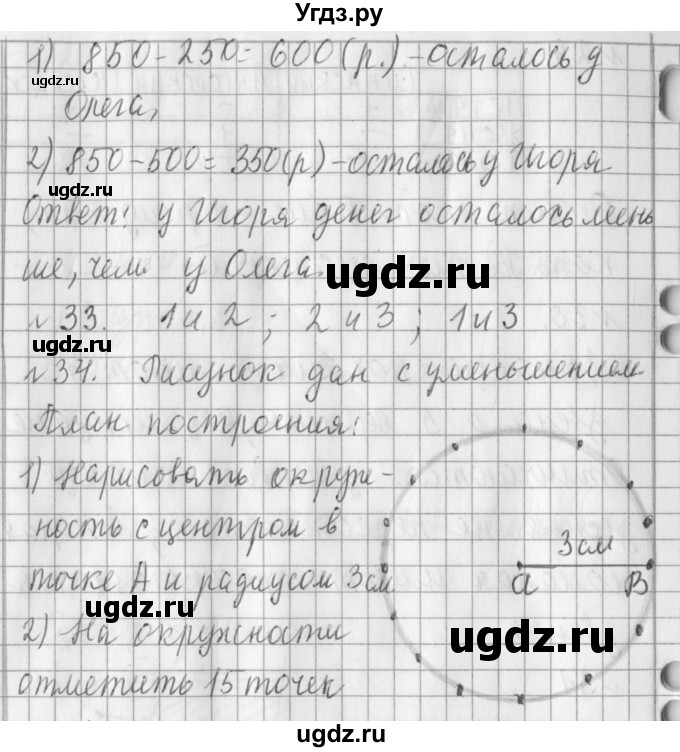 Угдз.ру
1) 850-250=600(р.)-осталось у
ugdz.ru
Олега,
2) 850-500=350(р)-осталось у Игоря
ugdz.ru
Ответ! у Игоря денег осталось мень
ше, чем у Олега.
ugdz.ru
№33. 1 и 2 ; 2 и 3 ; 1 и 3
ugdz.ru
№34. Рисунок дан с уменьшением
План построения:
1) Нарисовать окруж-
ность с центром в
3 см
точке А и радиусом 3см
a B
ugdz.ru
2) На окружности
ugdz.ru
отметить 15 точек
ugdz.ru